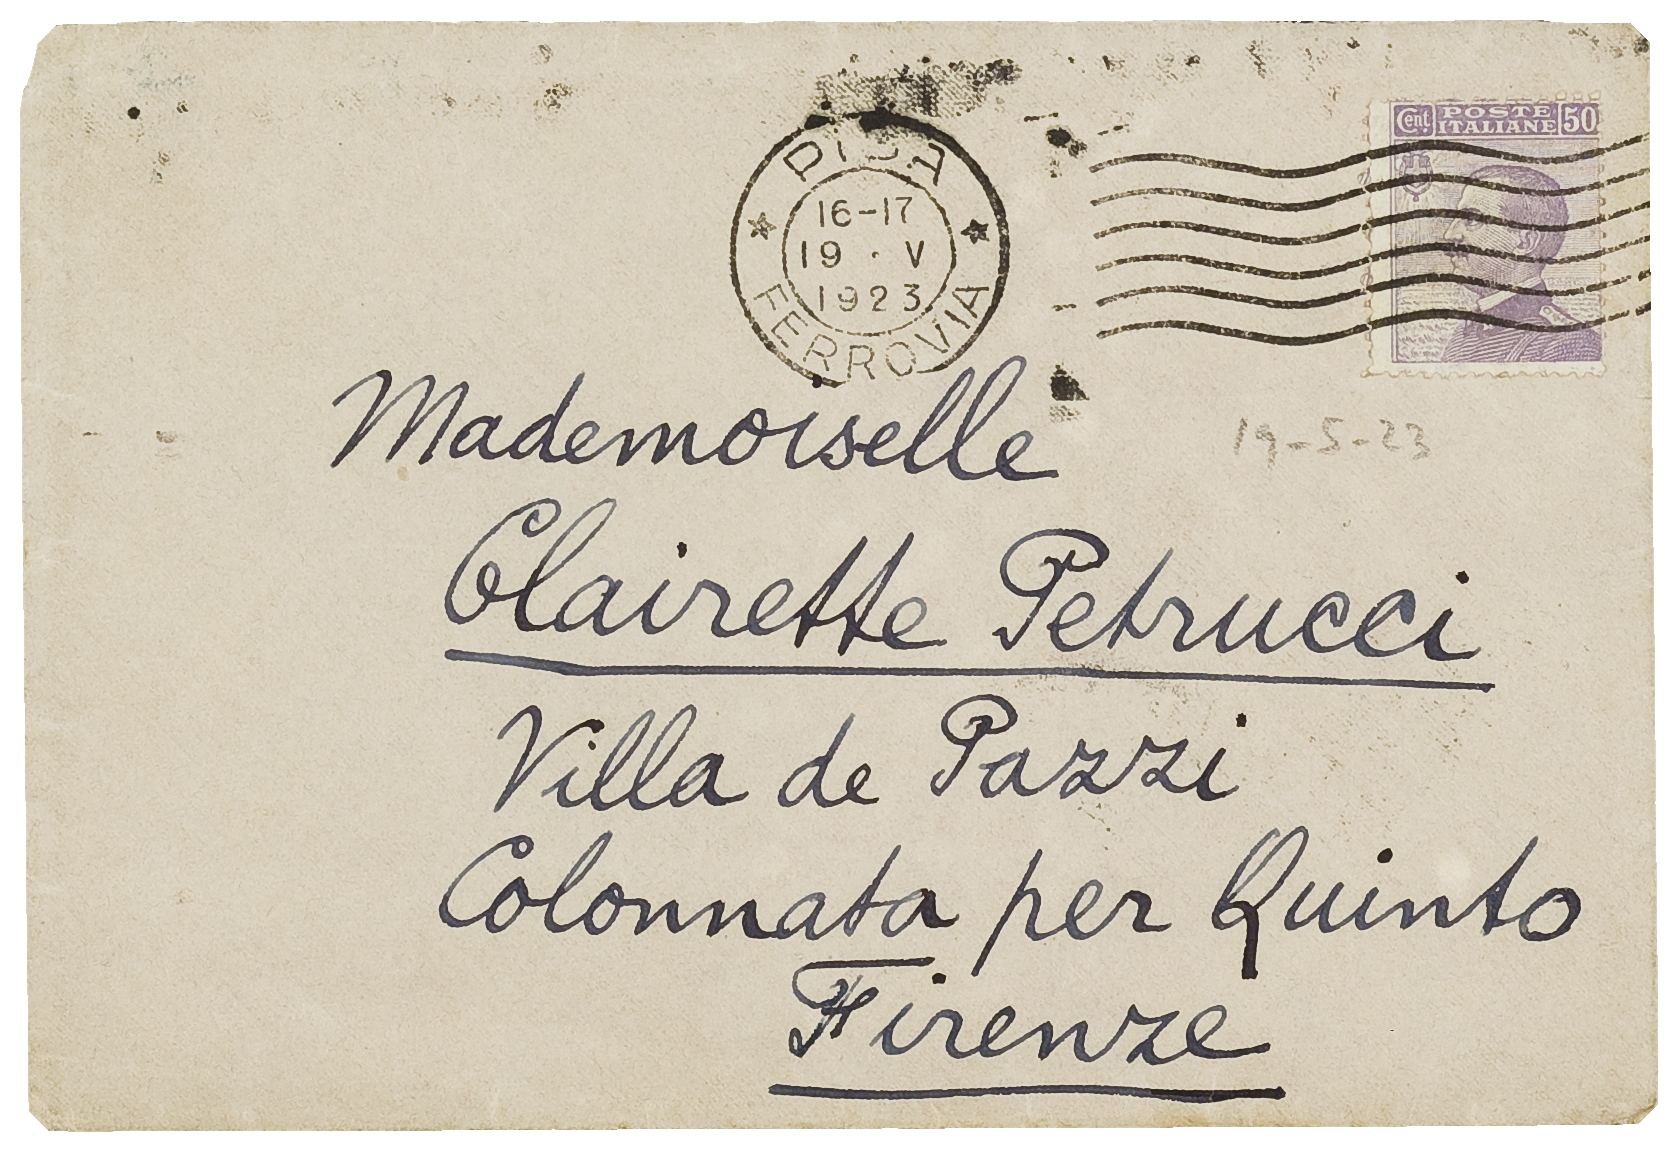 PISA
16-17
19 · V
1923
FERROVIA
Cent. POSTE ITALIANE 50
19-5-23
Mademoiselle
Clairette Petrucci
Villa de Pazzi
Colonnata per Quinto
Firenze